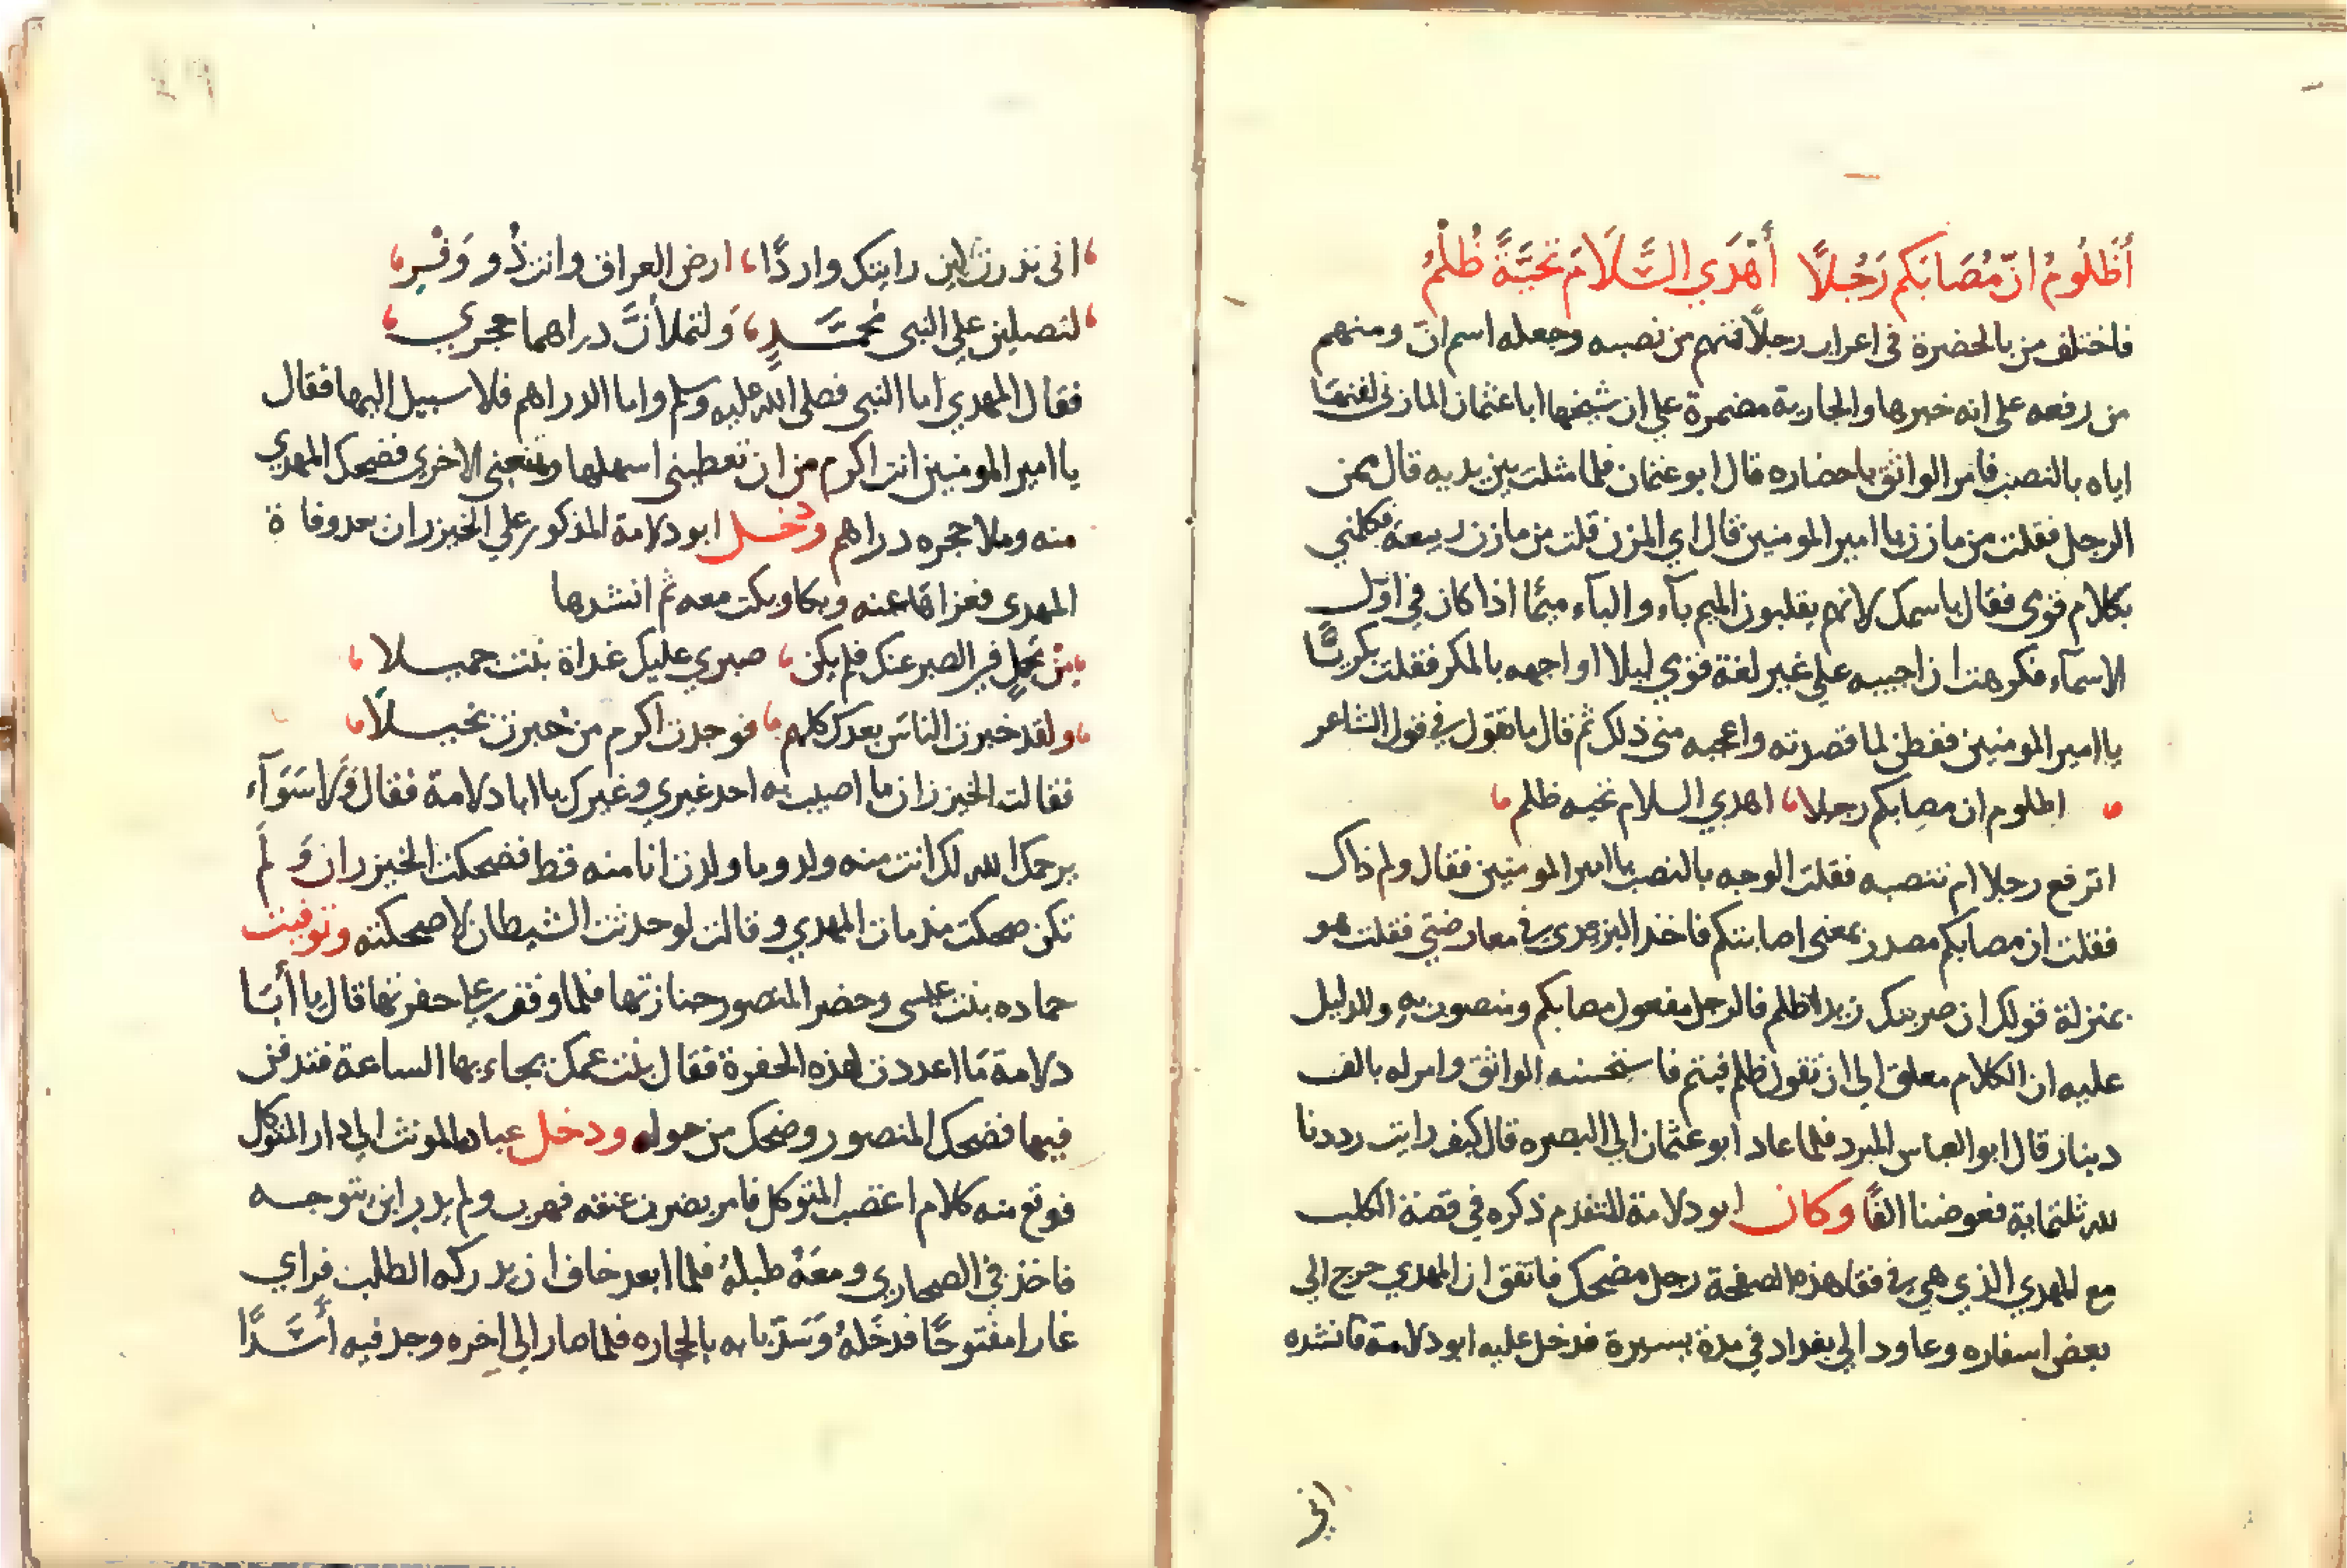 أَظَلُومُ انّ مُصَابَكم رَجُلاً أَهْدَي السَّلَامَ تَحيَّةً ظُلْمُ
فاختلف من بالحضرة في اعراب رجلاً فمنهم من نصبه وجعله اسم انّ ومنهم
من رفعه على انه خبرها والجارية مضمرة علي ان شيخها ابا عثمان المازني لقنها
اياه بالنصب فامر الواثق باحضاره قال ابو عثمان فلما مثلت بين يديه قال ممن
الرجل فقلت من مازن يا امير المومنين قال اي المزن قلت من مازن ربيعة فكلمني
بكلام قومى فقال باسمك لانهم يقلبون الميم بآء والبآء ميمًا اذا كان في اول
الاسمآء فكرهت ان اجيبه علي غير لغة قومي ليلا اواجهه بالمكر فقلت بكر
يا امير المومنين ففطن لما قصدته واعجبه مني ذلك ثم قال ما تقول في قول الشاعر
اظلوم ان مصابكم رجلا اهدي السلام تحيه ظلم
اترفع رجلا ام تنصبه فقلت الوجه بالنصب يا امير المومنين فقال ولم ذاك
فقلت ان مصابكم مصدر بمعنى اصابتكم فاخذ اليزيدي في معارضتي فقلت هو
بمنزلة قولك ان ضربك زيدا ظلم فالرجل مفعول مصابكم ومنصوب به والدليل
عليه ان الكلام معلق الي ان تقول ظلم فيتم فاستحسنه الواثق وامر له بالف
دينار قال ابو العباس المبرد فلما عاد ابو عثمان الي البصره قال كيف رايت رددنا
لله ثلثماية فعوضنا الفًا وكان ابو دلامة المتقدم ذكره في قصة الكلب
مع المهدي الذي هي في قفا هذه الصفحة رجل مضحك فاتفق ان المهدي خرج الي
بعض اسفاره وعاود الي بغداد في مدة يسيرة فدخل عليه ابو دلامة فانشده
اني
اني نذرت لين رايتك واردًا ارض العراق وانت ذُو وَفْرِ
لتصلين علي النبي محمَّدٍ وَلتملأنَّ دراهما حجري
فقال المهدي اما النبي فصلى الله عليه وسلم واما الدراهم فلا سبيل اليها فقال
يا امير المومنين انت اكرم من ان تعطيني اسهلها وتمنعني الاخري فضحك المهدي
منه وملا حجره دراهم ودخل ابو دلامة المذكور علي الخيزران بعد وفاة
المهدي فعزاها عنه وبكا وبكت معه ثم انشدها
الصبر عنك فلم يكن صبري عليك غداة بنت جميلا
ولقد خبرت الناس بعدك كلهم فوجدت اكرم من خبرت بخيلاً
فقالت الخيزران ما اصيب به احد غيري وغيرك يا ابا دلامة فقال وَلا سَوَآء
يرحمك الله لك انت منه ولد وما ولدت انا منه قط فضحكت الخيزران وَلَم
تكن ضحكت منذ مات المهدي وقالت لو حدثت الشيطان لاضحكته وتوفيت
حماده بنت عيسى وحضر المنصور جنازتها فلما وقف علي حفرتها قال يا أبَا
دلامة مَا اعددت لهذه الحفرة فقال بنت عمك يجاء بها الساعة فتدفن
فيها فضحك المنصور وضحك من حوله ودخل عباده المونث الي دار المتوكل
فوقع منه كلام اغضب المتوكل فامر بضرب عنقه فهرب ولم يدر اين يتوجه
فاخذ في الصحاري ومعَهُ طبلهُ فلما ابعد خاف ان يدركه الطلب فراي
غارا مفتوحًا فدخَلهُ وَسَدّ بابه بالحجاره فلما صار الي اخِره وجد فيه أَسَدًا